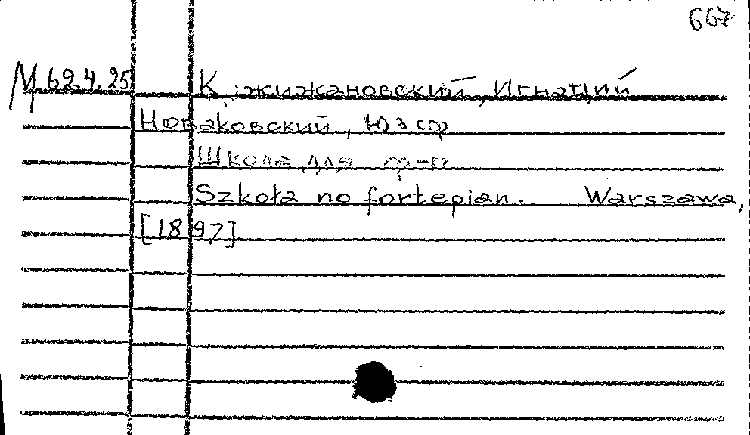 667
М 62.4.25 К жижановский, Игнаций
Новаковский, Юзеф
Школа для ф-п
Szkoła na fortepian.. Warszawa,
[1897]